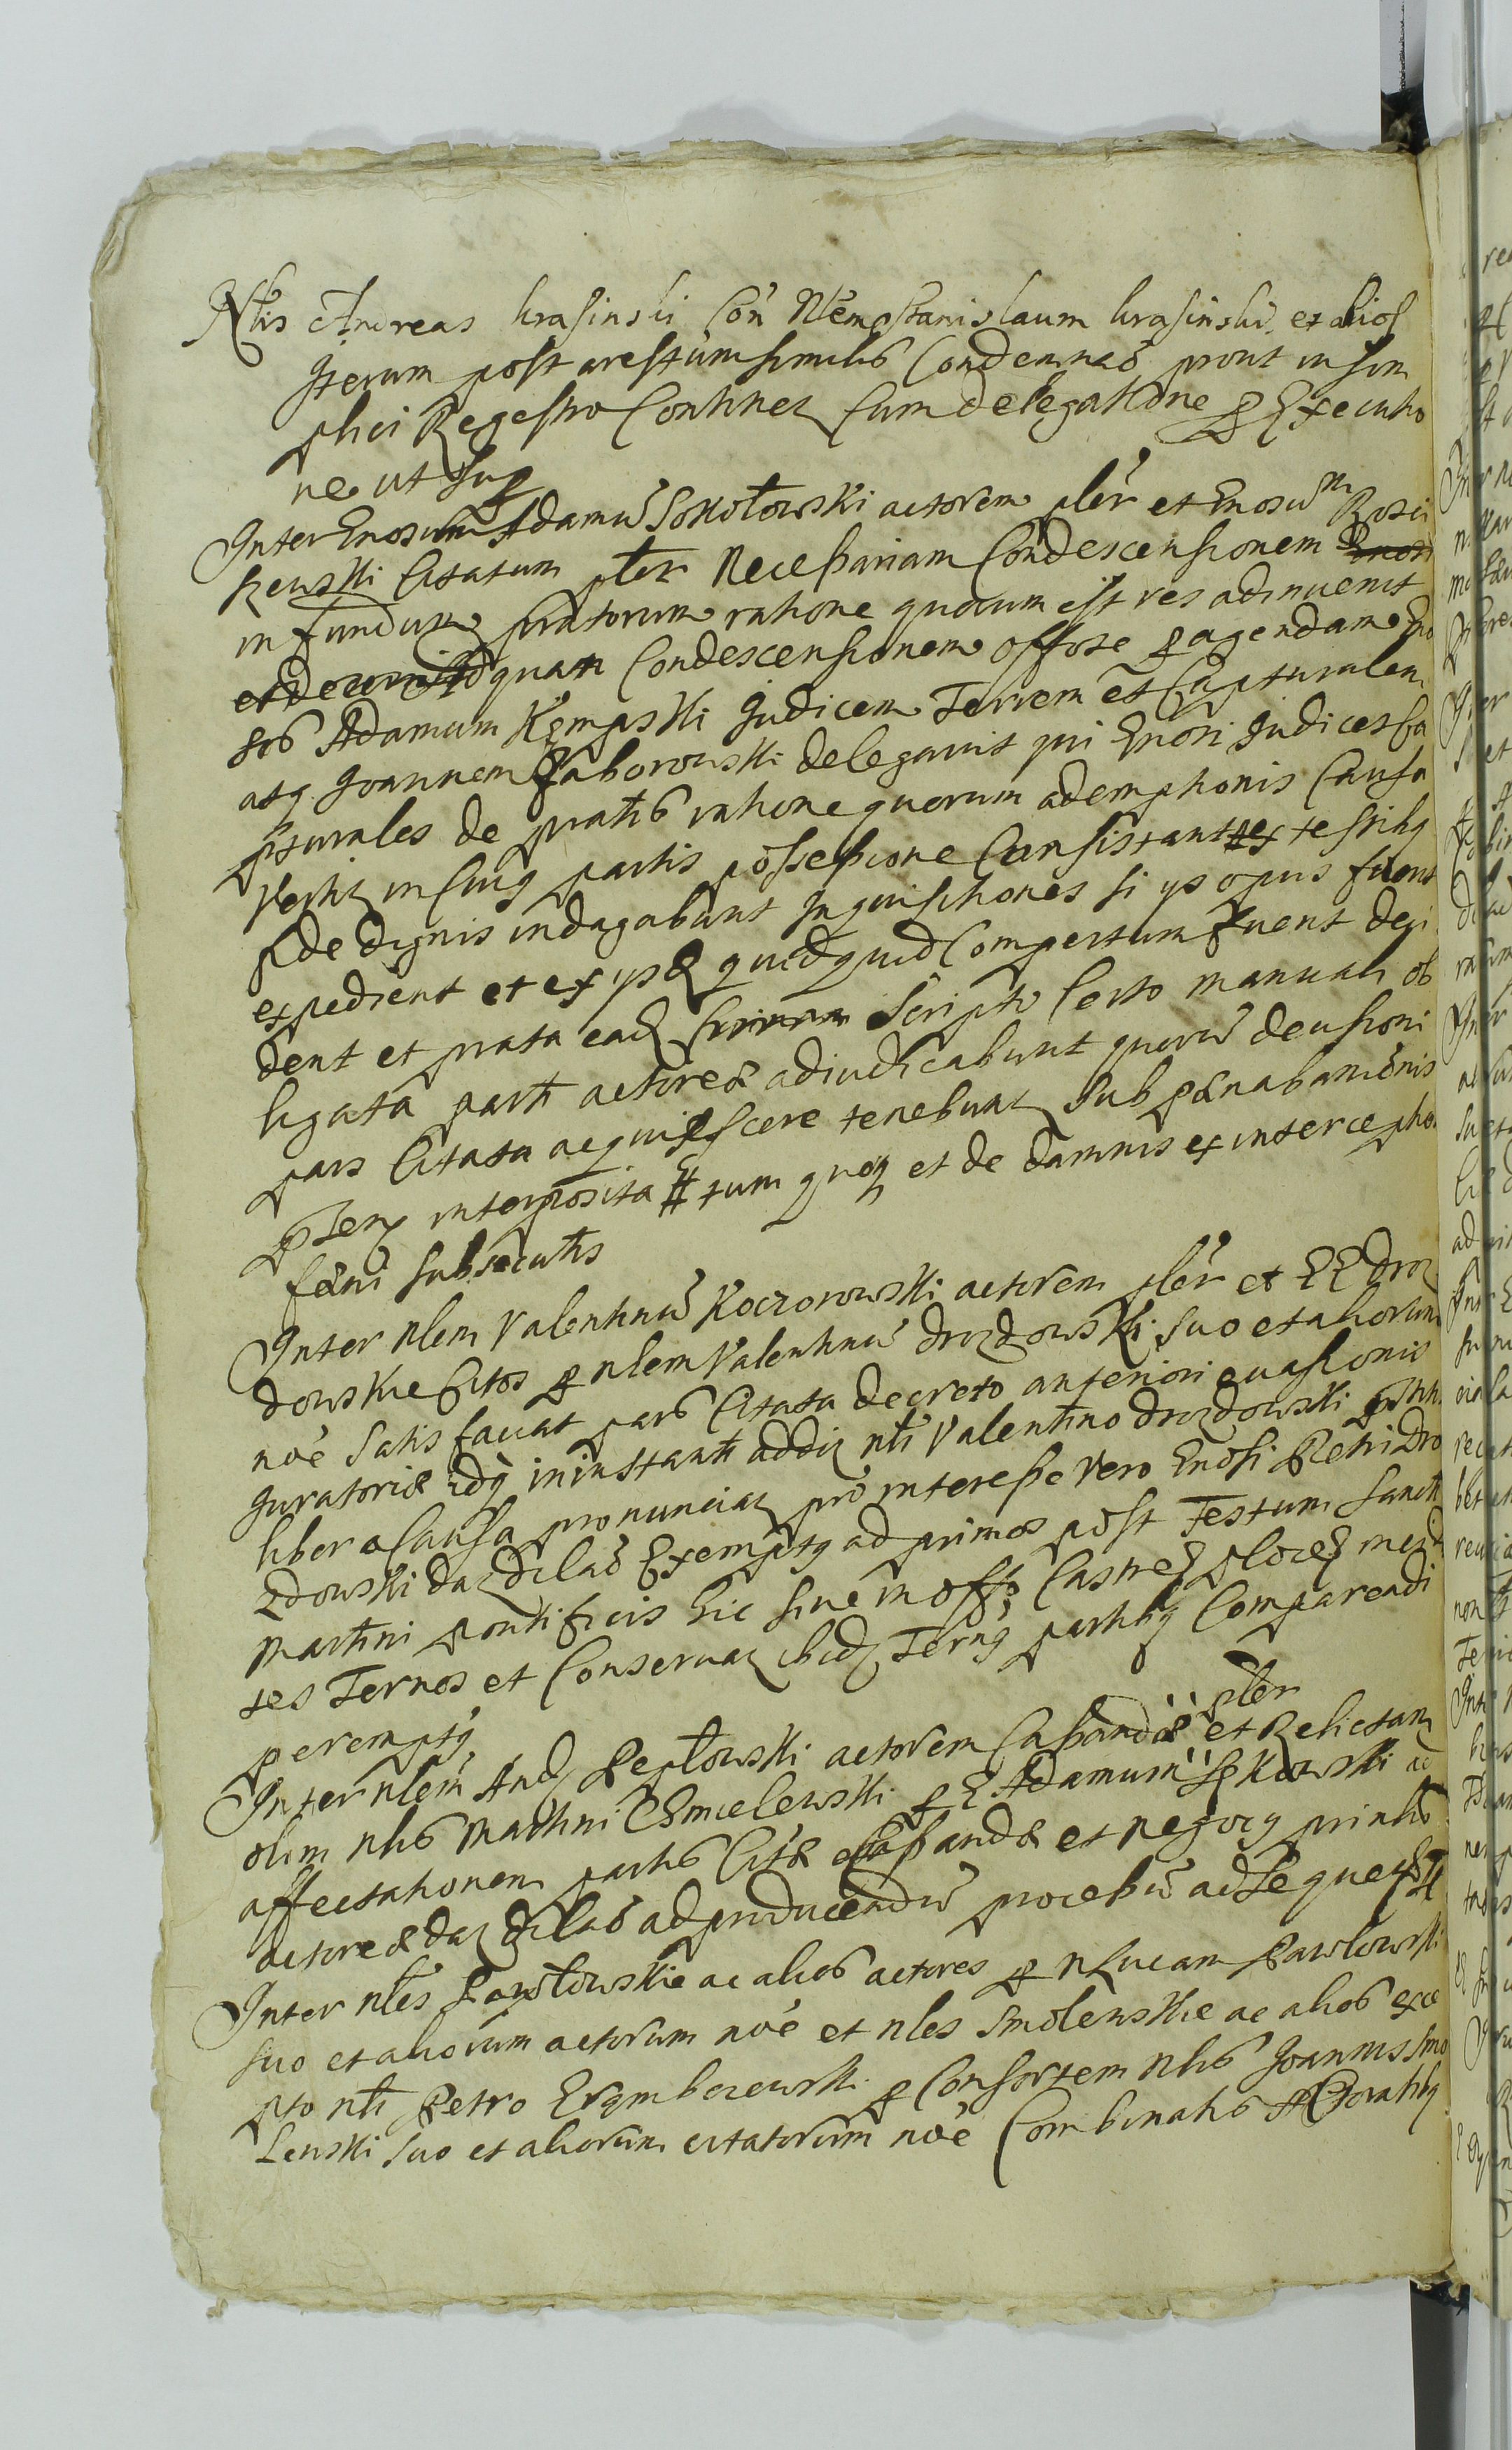 Nlis Andreas krasinski Con Nlem Stanislaum krasinski et alios
Iterum post arestum similis Condemnaõ prout in sim
plici Regestro Continetz Cum delegatione p Executio
ne ut sup
Inter Gnosum Adamũ Sokołowski actorem pler et Gnosũ Rosci
szewski Citatum pler Necessariam Condescensionem
in fundum pratorum ratione quorum est res adinuenit
Ad quam Condescensionem offose p agendam Gno
sos Adamum Kempski Iudicem Terrem et Capturalem
atq Ioannem Zaborowski delegauit qui Gnosi Iudices Ca
pturales de pratis ratione quorum ademptionis Causa
vertitz in Cuiq partis possessione Consistant ex testibq
fide dignis indagabunt Inquisitiones si ys opus fuerit
expedient et ex ys quidquid Compertum fuerit deci
dent et prata eadz Scripto Certo manuali ob
ligata parti actoreæ adiudicabunt quorũ decisioni
pars Citata acquiescere tenebunt sub pæna banionis
p Ien interposita tum quoq et de damnis ex interceptio
fæni subsecutis
Inter Nlem Valentinũ Koczorowski actorem pler et GG Droz
dowskie Citos p nlem Valentinũ Drozdowski suo et aliorum
noẽ Satis faciat pars Citata decreto anteriori euasionis
Iuratoriæ idq in instanti addiz nli Valentino Drozdowski
libera Causa pronunciatz pro interesse vero Gnosi Petri Dro
zdowski daz dilaõ Exempty ad primos post Festum Sancti
Martini pontificis hic siue in offo Castren plocen
tes Ternos et Conseruaz ibidz Ternq partibq Comparendi
peremptq
Inter nlem Andz Peplowski actorem Cassandæ pler et Relictam
olim nlis Martini Chmielewski p G Adamum Sękowski ad
affectationem partis Citæ Cassandæ et negocy printis
actoreæ daz dilaõ ad producendũ processũ
Inter nles Pawlowskie ac alios actores p N Lucam Pawlowski
suo et aliorum actorum noẽ et nles Smolenskie ac alios exce
pto nli Petro Grembczewski p Consortem nlis Ioannis Smo
lenski suo et aliorum citatorum noẽ Combinatis